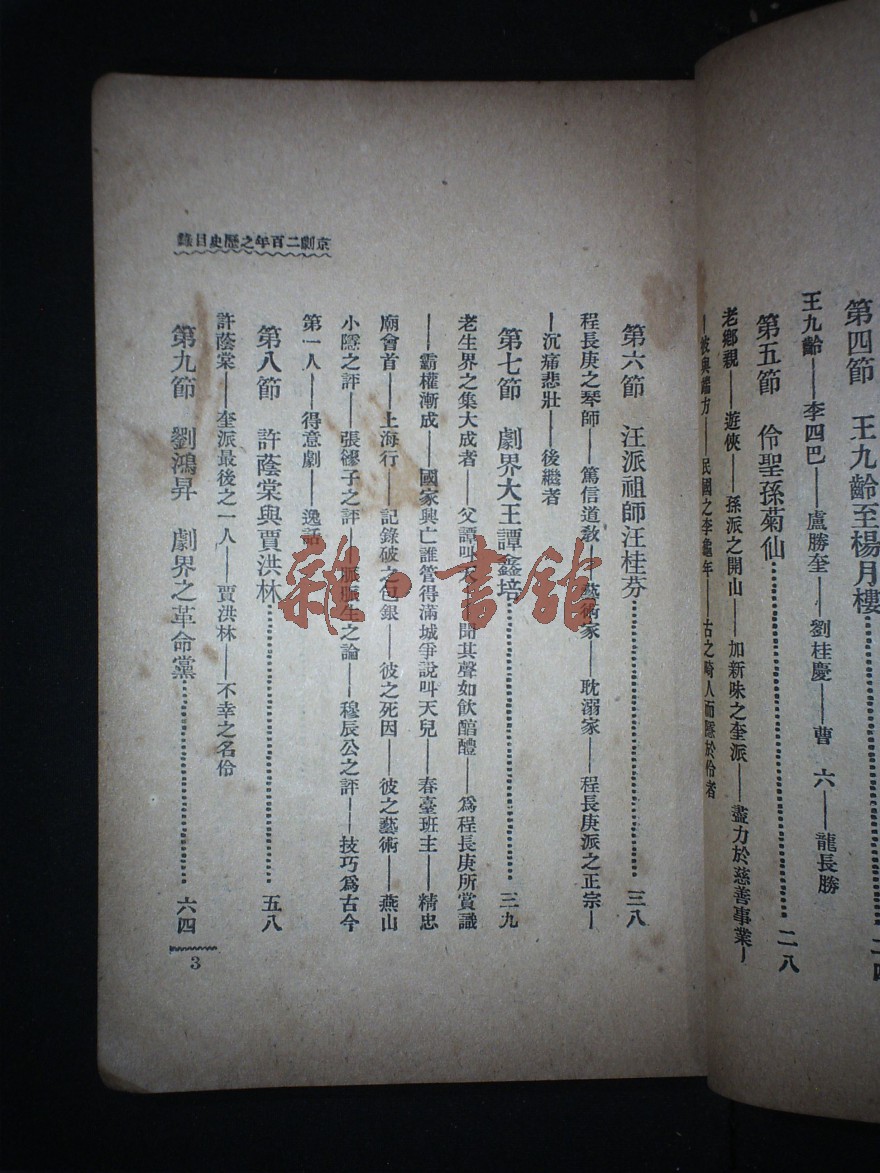 第四節　王九齡至楊月樓……二四
王九齡——李四巴——盧勝奎——劉桂慶——曹　六——龍長勝
第五節　伶聖孫菊仙……二八
老鄉親——遊俠——孫派之開山——加新味之奎派——盡力於慈善事業—
—彼與端方——民國之李龜年——古之畸人而隱於伶者
京劇二百年之歷史目錄
第六節　汪派祖師汪桂芬……三八
程長庚之琴師——篤信道教——藝術家——耽溺家——程長庚派之正宗—
—沉痛悲壯——後繼者
第七節　劇界大王譚鑫培……三九
老生界之集大成者——父譚叫天——聞其聲如飲醅醴——爲程長庚所賞識
——霸權漸成——國家興亡誰管得滿城爭說叫天兒——春臺班主——精忠
廟會首——上海行——記錄破之包銀——彼之死因——彼之藝術——燕山
小隱之評——張繆子之評——脈脈生之論——穆辰公之評——技巧爲古今
第一人——得意劇——逸話
第八節　許蔭棠與賈洪林……五八
許蔭棠——奎派最後之一人——賈洪林——不幸之名伶
第九節　劉鴻昇　劇界之革命黨……六四
3
雜·書館